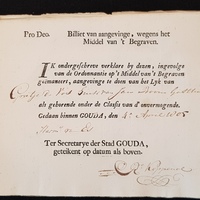 Pro Deo. Billiet van aangevinge, wegens het
Middel van 't Begraven.
IK ondergeschreve verklare by dezen, ingevolge
van de Ordonnantie op 't Middel van 't Begraven
geëmaneert, aangevinge te doen van het Lyk van
als gehorende onder de Classis van d' onvermogende.
Gedaan binnen GOUDA, den 4 April 1805
Ter Secretarye der Stad GOUDA,
geteikent op datum als boven.